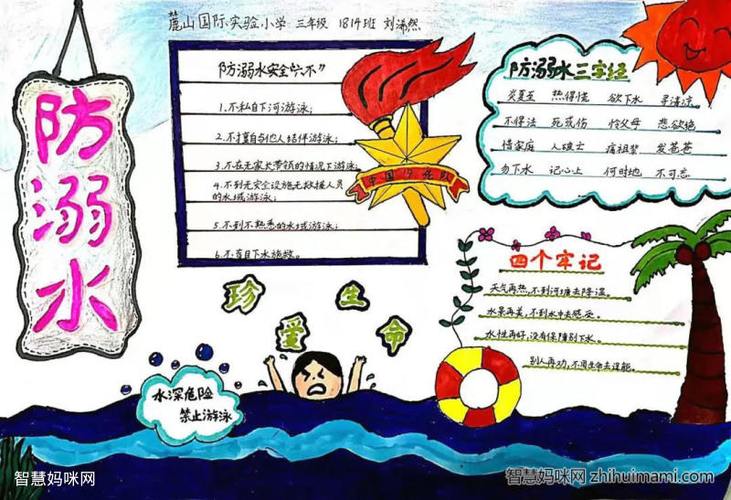 麓山国际实验小学 三年级 1814班 刘沛然
防溺水
防溺水安全"六不"
1.不私自下河游泳；
2.不擅自与他人结伴游泳；
3.不在无家长带领的情况下游泳；
4.不到无安全设施无救援人员
的水域游泳；
5.不到不熟悉的水域游泳；
6.不盲目下水施救。
中国少先队
防溺水三字经
炎夏至 热得慌 欲下水 寻清凉
不得法 死或伤 怜父母 悲欲绝
惜家庭 人破亡 痛祖辈 发苍苍
勿下水 记心上 何时地 不可忘
四个牢记
天气再热，不到河塘去降温。
水景再美，不到水中去感受。
水性再好，没有保障别下水。
别人再功，不用生命去逞能。
珍爱生命
水深危险
禁止游泳
智慧妈咪网
智慧妈咪网 zhihuimami.com